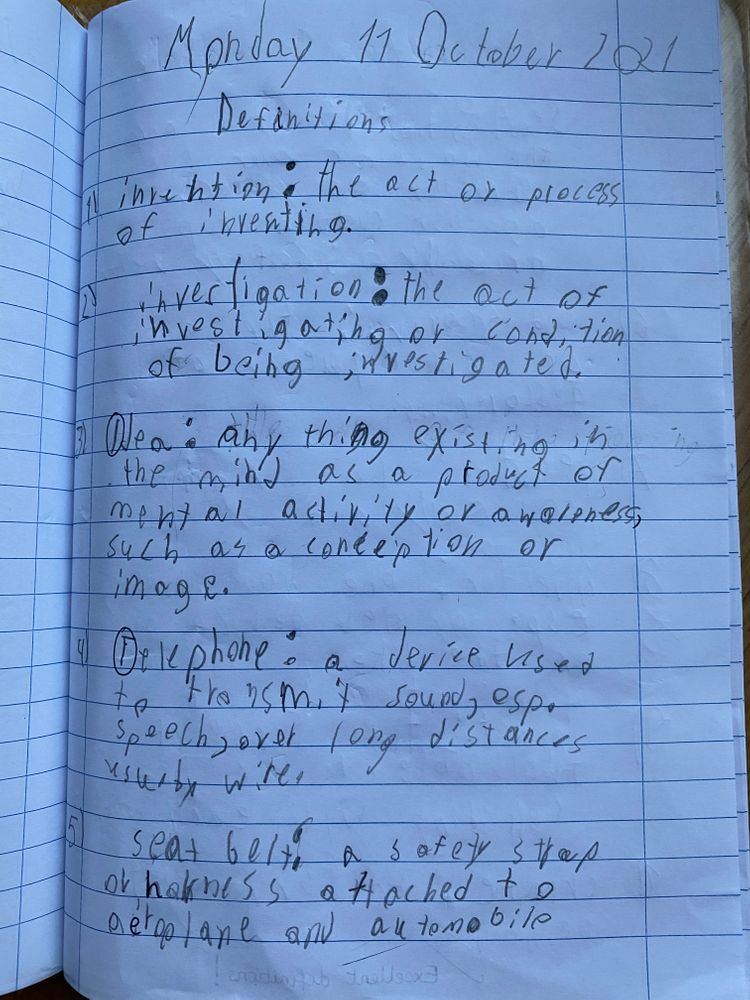 Monday 11 October 2021
Definitions
1) invention: the act or process
of inventing.
2) investigation: the act of
investigating or condition
of being investigated.
3) Idea: any thing existing in
the mind as a product of
mental activity or awareness,
such as a conception or
image.
4) Telephone: a device used
to transmit sound, esp.
speech, over long distances
by wire.
5) seat belt: a safety strap
or harness attached to
aeroplane and automobile
Excellent definitions!